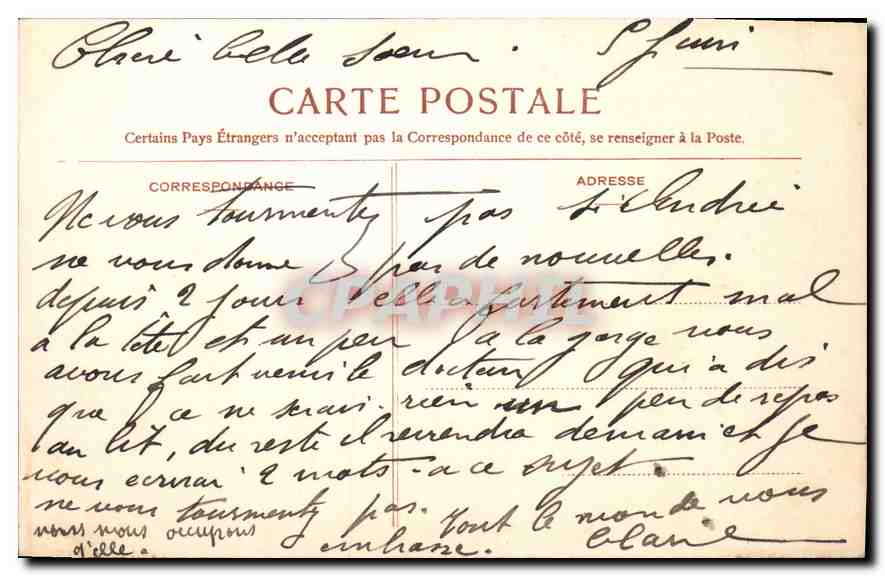 Chère belle Soeur. 5 Juin
CARTE POSTALE
Certains Pays Étrangers n'acceptant pas la Correspondance de ce côté, se renseigner à la Poste.
CORRESPONDANCE ADRESSE
Ne vous tourmentez pas si Andrée
ne vous donne pas de nouvelles.
depuis 2 jours elle a fortement mal
a la tête et un peu a la gorge nous
avons fait venir le docteur qui a dis
que ce ne serais rien un peu de repos
au lit, du reste il reviendra demain et je
vous ecrirai 2 mots a ce sujet
ne vous tourmentez pas. Tout le monde vous
embrasse. Claire
nous nous occupons
d'elle.
CPAPHIL